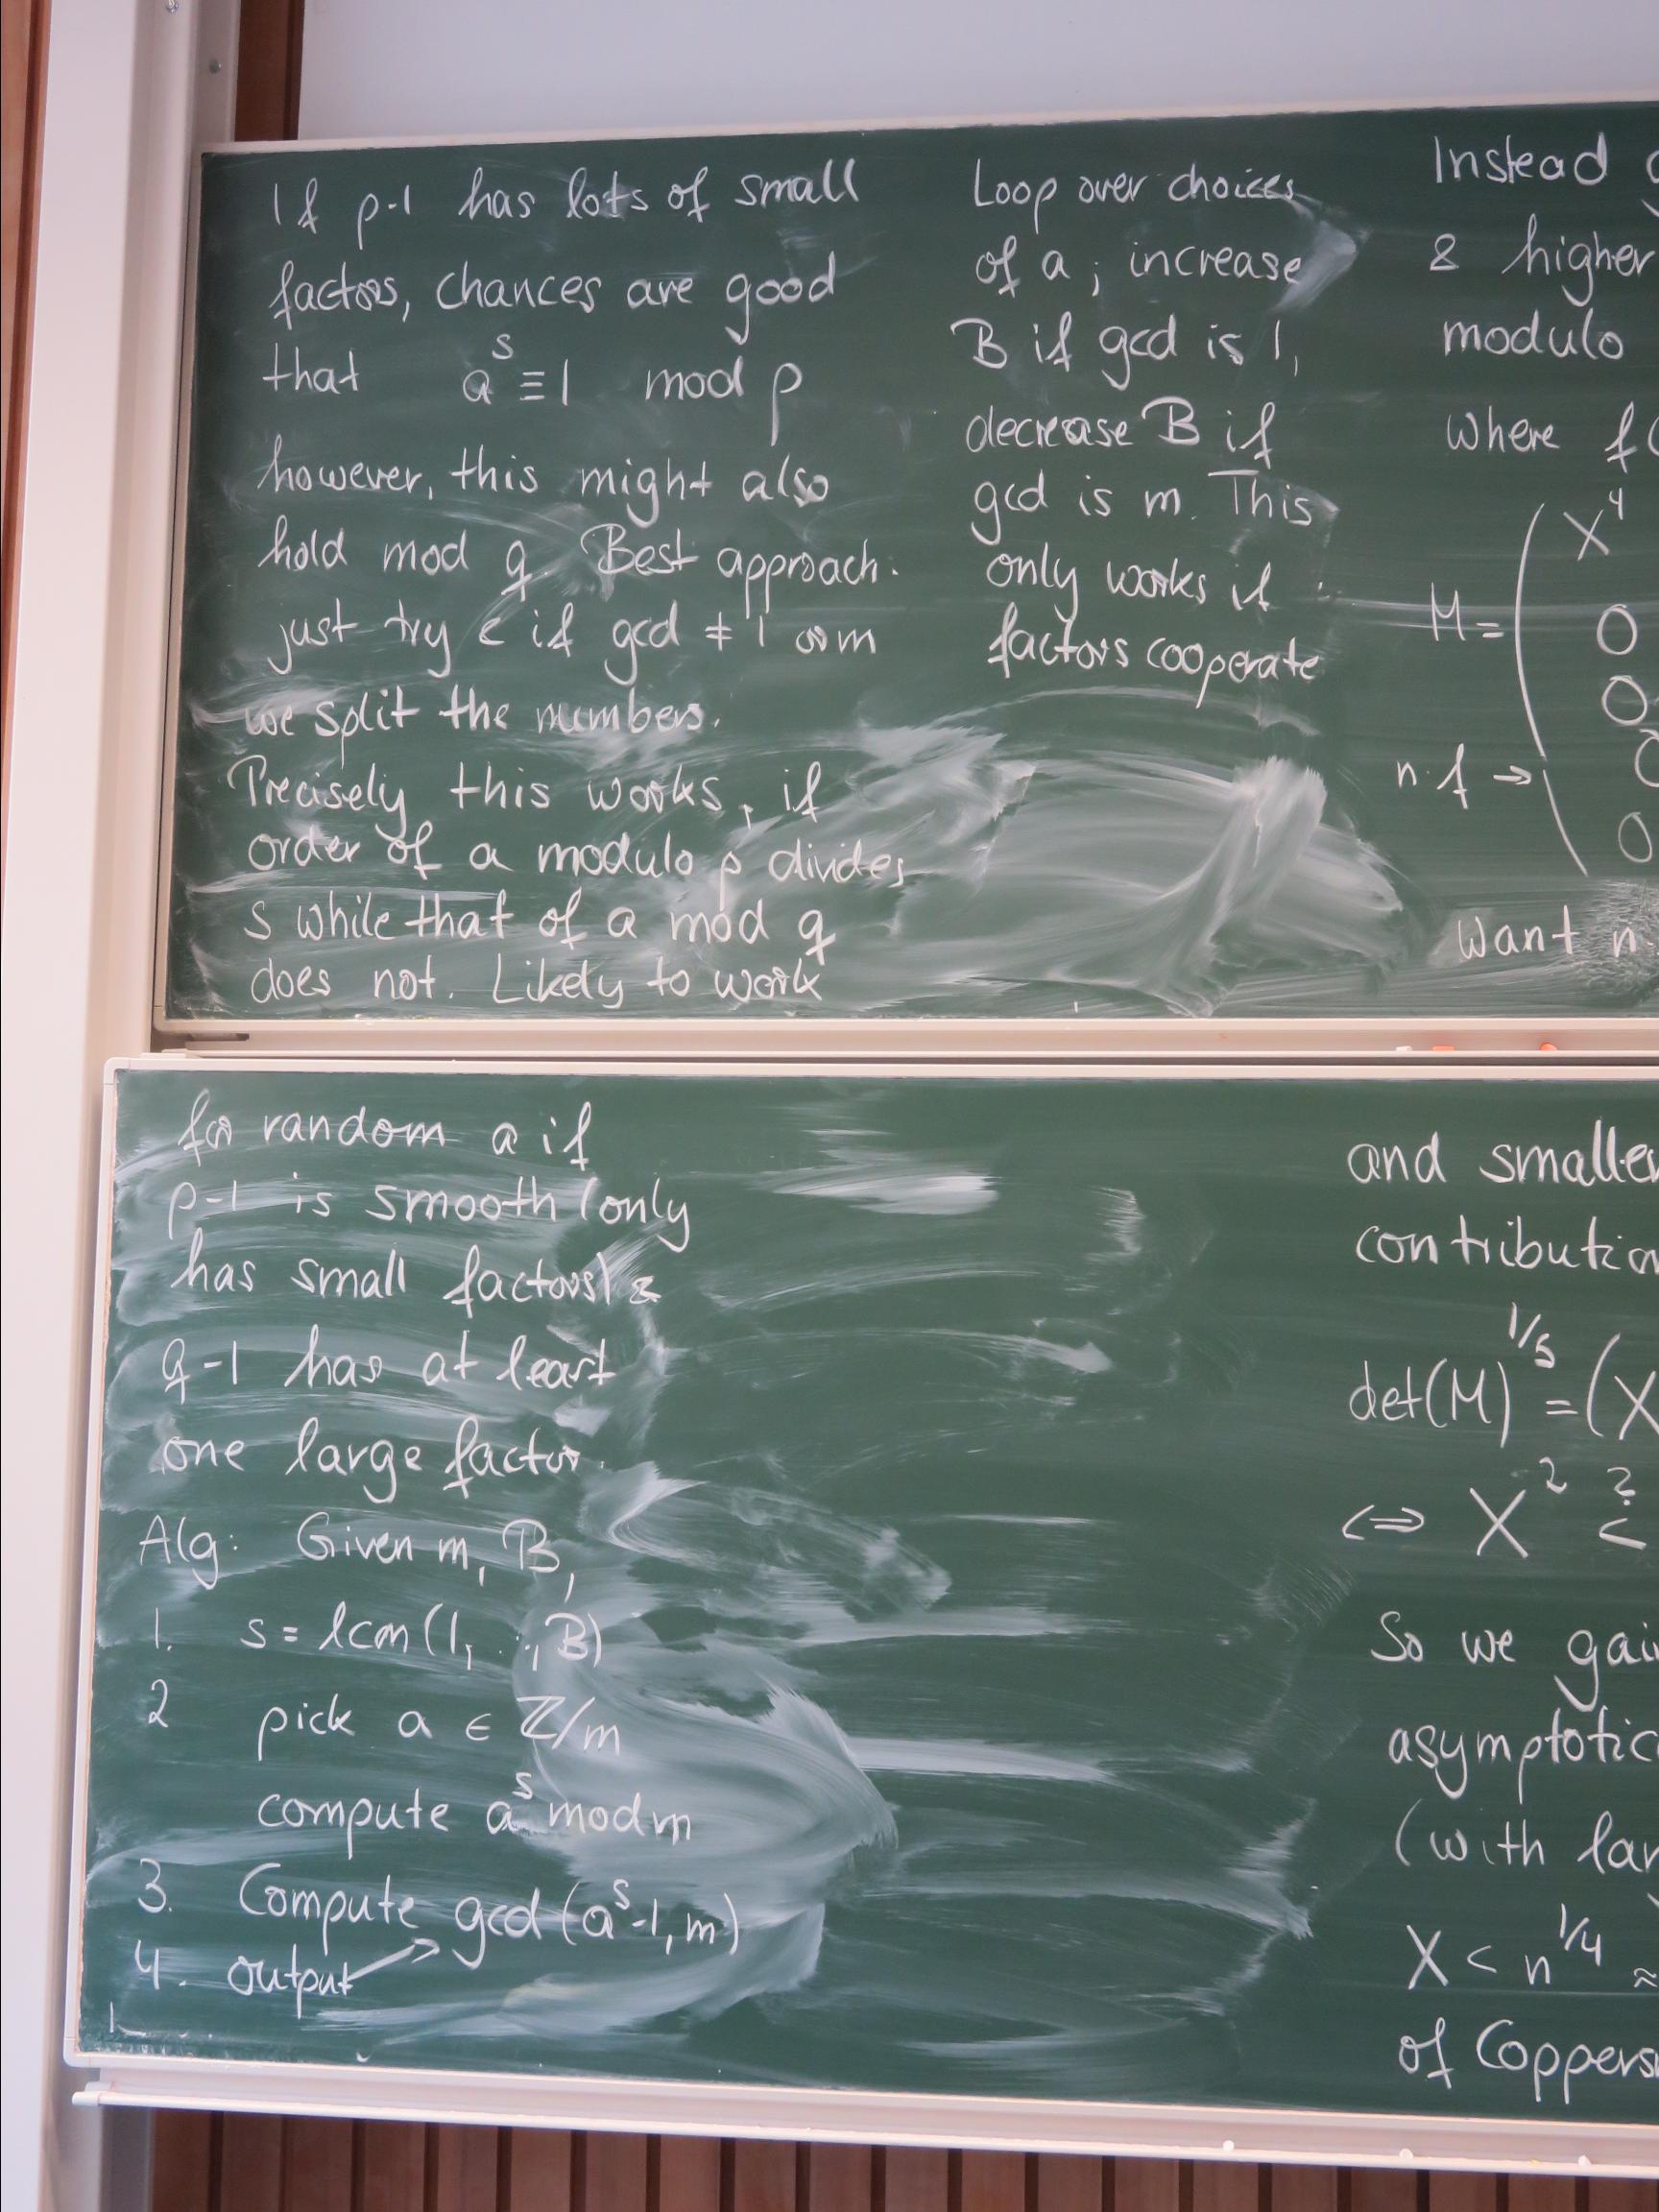 If p-1 has lots of small
factors, chances are good
that a^s ≡ 1 mod p
however, this might also
hold mod q. Best approach:
just try & if gcd ≠ 1 or m
we split the numbers.
Precisely this works, if
order of a modulo p divides
s while that of a mod q
does not. Likely to work
Loop over choices
of a; increase
B if gcd is 1,
decrease B if
gcd is m. This
only works if
factors cooperate
Instead
& higher
modulo
where f(
M = ( X^4
0
0
n·f → 0
0
Want n
for random a if
p-1 is smooth (only
has small factors) &
q-1 has at least
one large factor.
Alg: Given m, B,
1. s = lcm(1, .., B)
2 pick a ∈ ℤ/m
compute a^s mod m
3. Compute gcd(a^s-1, m)
4. output
and smaller
contribution
det(M)^1/5 = (X
⇔ X^2 ?<
So we gain
asymptotic
(with lar
X < n^1/4 ≈
of Coppers